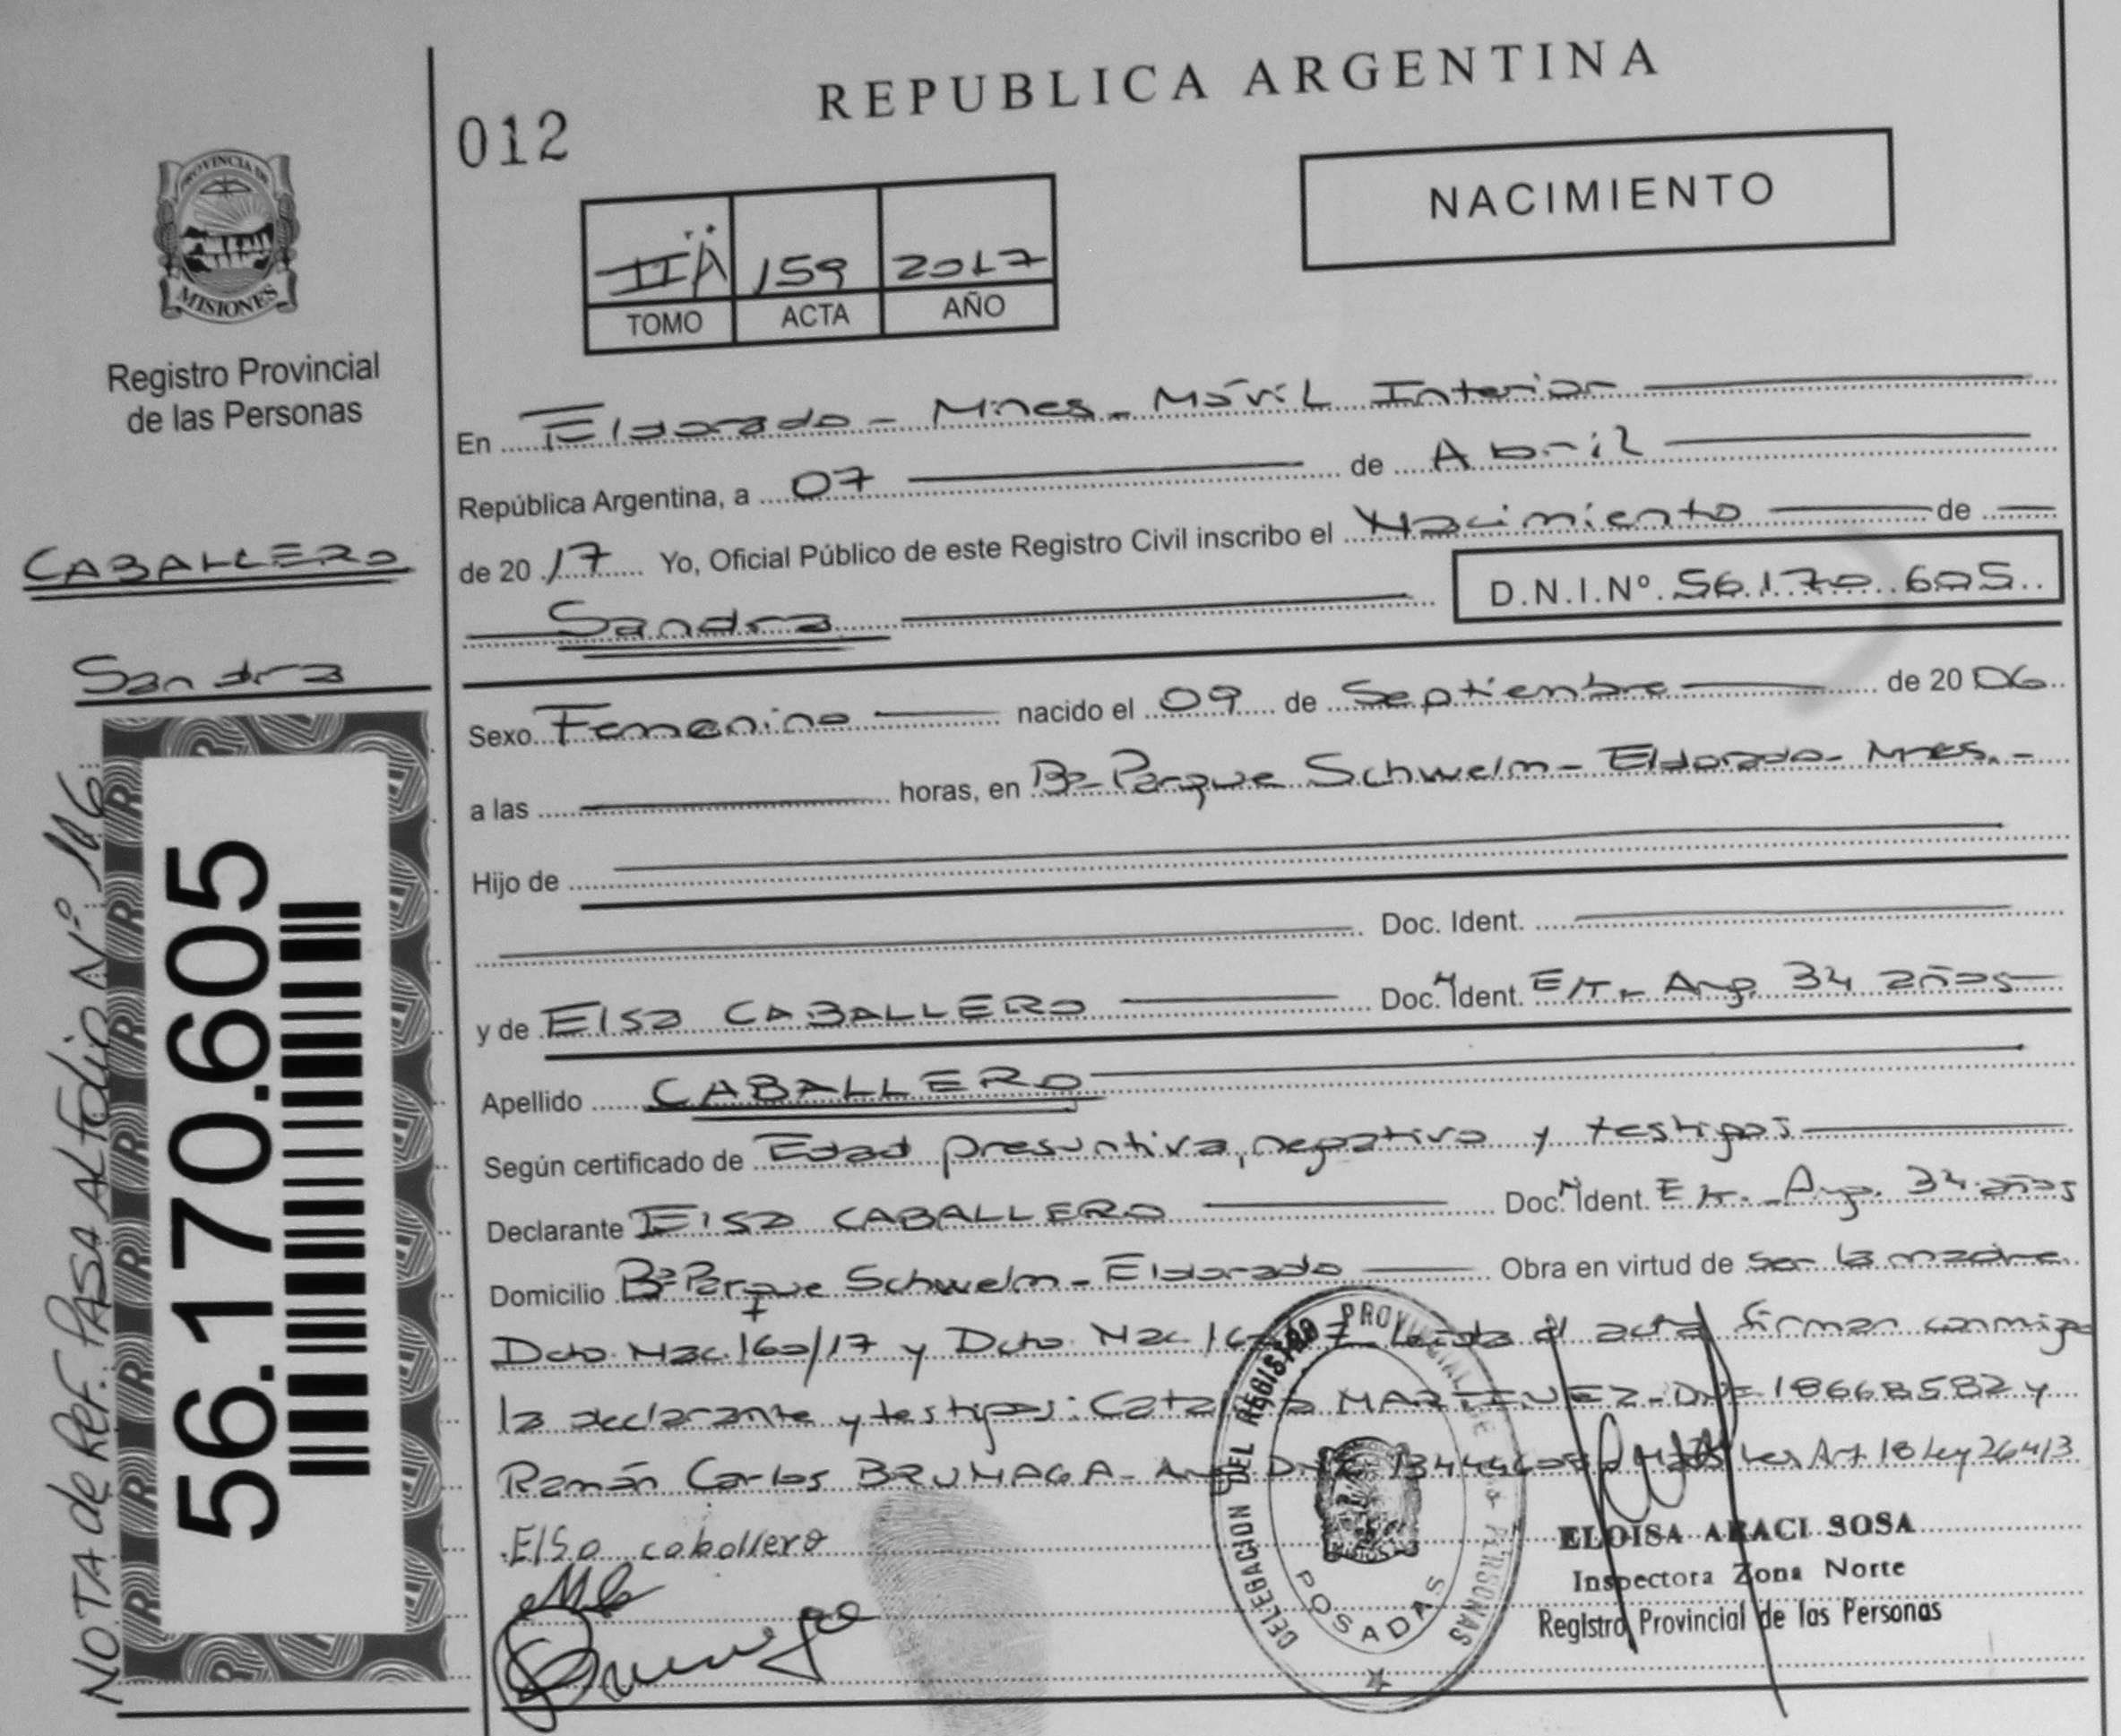 REPUBLICA ARGENTINA
012
NACIMIENTO
PROVINCIA DE
MISIONES
Registro Provincial
de las Personas
CABALLERO
Sandra
NOTA de Ref. PASA AL folio Nº 116
56.170.605
IIA 159 2017
TOMO ACTA AÑO
En Eldorado - Mnes - Móvil Interior
República Argentina, a 07 de Abril
de 20 17 Yo, Oficial Público de este Registro Civil inscribo el Nacimiento de
Sandra D.N.I.Nº 56.170.605
Sexo Femenino nacido el 09 de Septiembre de 20 06
a las horas, en Bº Parque Schwelm - Eldorado - Mnes.-
Hijo de
Doc. Ident.
y de Elsa CABALLERO Doc. N Ident. E/T. Arg. 34 años
Apellido CABALLERO
Según certificado de Edad presuntiva, negativo y testigos
Declarante Elsa CABALLERO Doc. N Ident. E/T. - Arg. 34 años
Domicilio Bº Parque Schwelm - Eldorado Obra en virtud de ser la madre
Dcto Nac. 160/17 y Dcto Nac. Leída el acta firman conmigo
la declarante y testigos: MARTINEZ - DNI 18668582 y
Ramón Carlos BRUMAGA - Art 18 Ley 26413
Elsa caballero
DELEGACION DEL REGISTRO PROVINCIAL DE LAS PERSONAS
POSADAS
ELOISA ARACI SOSA
Inspectora Zona Norte
Registro Provincial de las Personas